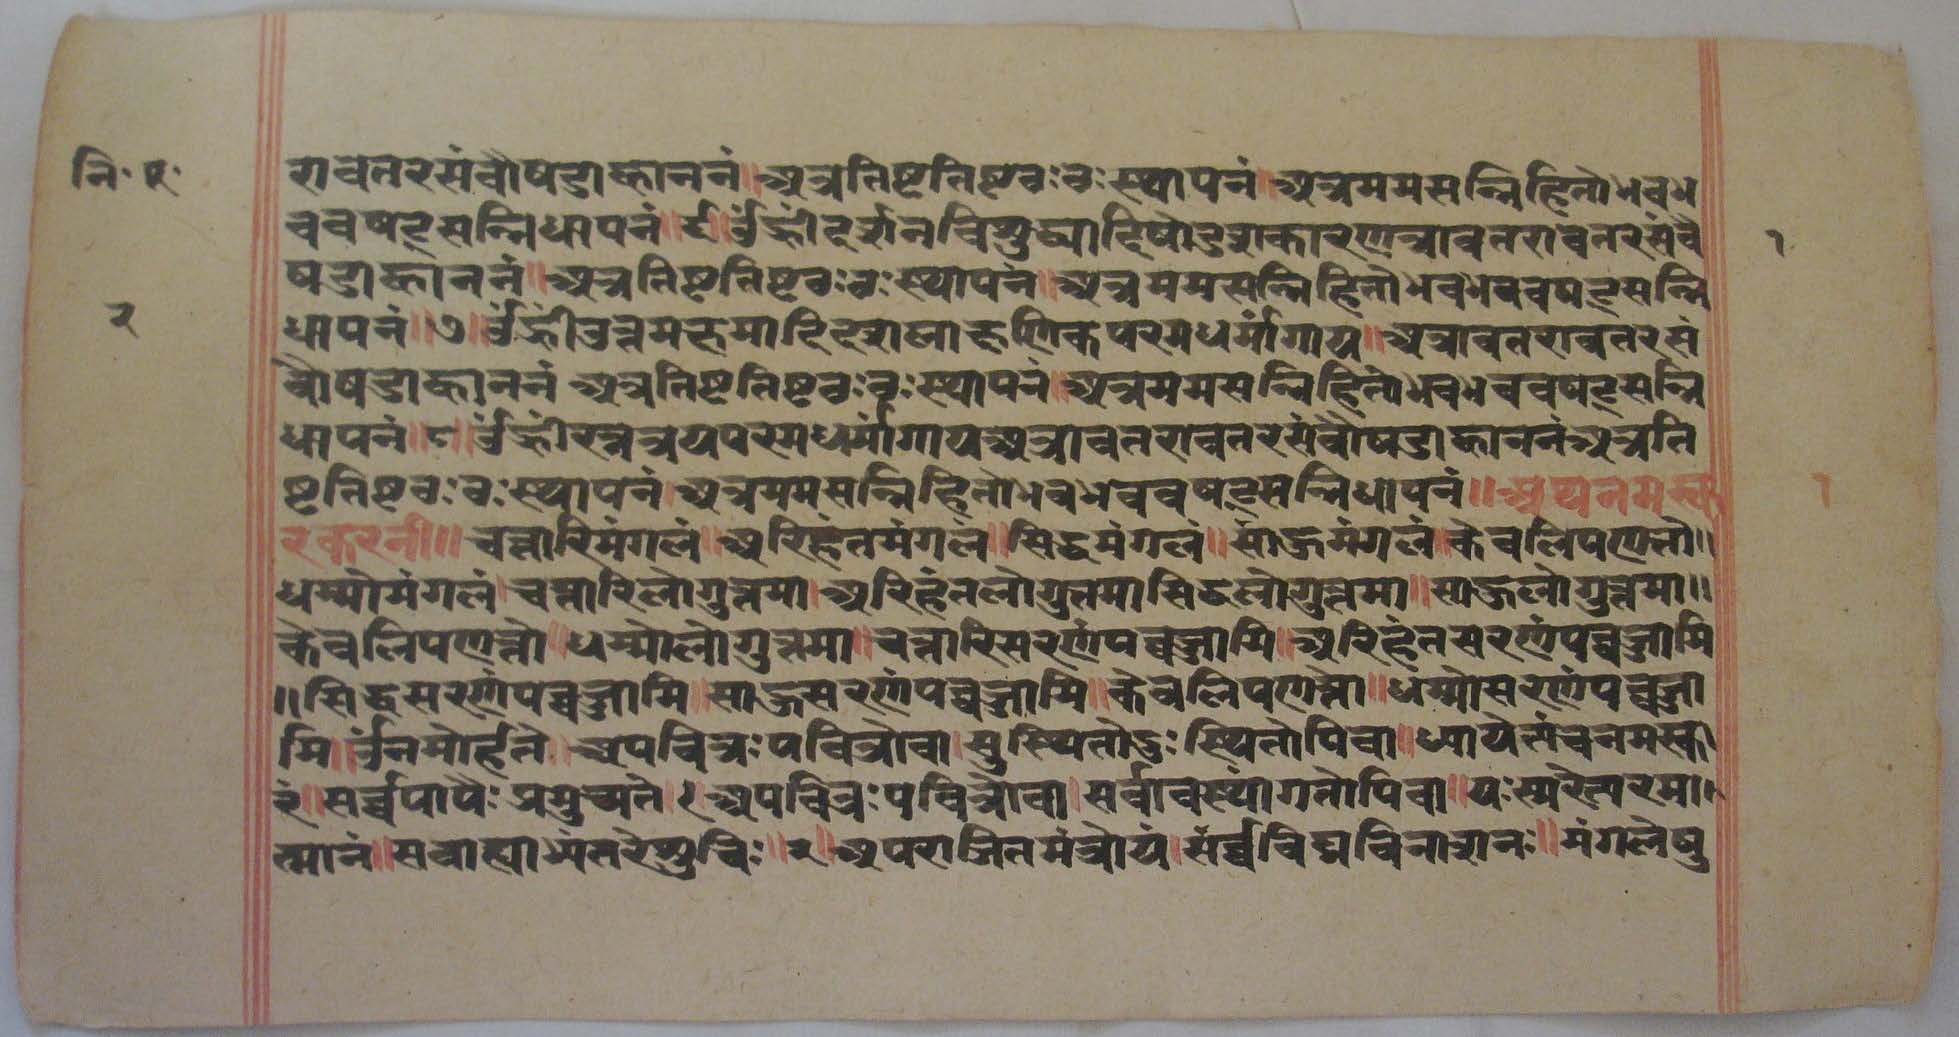 नि॰ पू॰
२
रावतरसंवौषडाह्वाननं॥अत्रतिष्टतिष्टठः ठः स्थापनं॥अत्रममसन्निहितोभवभ
ववषट्सन्निधापनं॥६॥ॐह्रींदर्शनविशुद्ध्यादिषोडशकारणअत्रावतरावतरसंवौ
षडाह्वाननं॥अत्रतिष्टतिष्टठः ठः स्थापनं॥अत्रममसन्निहितोभवभववषट्सन्नि
धापनं॥७॥ॐह्रींउत्तमक्षमादिदशलाक्षणिकपरमधर्मांगाय॥अत्रावतरावतरसं
वौषडाह्वाननं अत्रतिष्टतिष्टठः ठः स्थापनं॥अत्रममसन्निहितोभवभववषट्सन्नि
धापनं॥८॥ॐह्रींरत्नत्रयपरमधर्मांगायअत्रावतरावतरसंवौषडाह्वाननंअत्रति
ष्टतिष्टठः ठः स्थापनं॥अत्रममसन्निहितोभवभववषट्सन्निधापनं॥ नमस्का
रकरनी॥ चत्तारिमंगलं॥अरिहंतमंगलं॥सिद्धमंगलं॥साहूमंगलं॥केवलिपणत्तो॥
धम्मोमंगलं॥चत्तारिलोगुत्तमा॥अरिहंतलोगुत्तमासिद्धलोगुत्तमा॥साहूलोगुत्तमा॥
केवलिपणत्तो॥धम्मोलोगुत्तमा॥चत्तारिसरणंपव्वज्जामि॥अरिहंतसरणंपव्वज्जामि
॥सिद्धसरणंपव्वज्जामि॥साहूसरणंपव्वज्जामि॥केवलिपणत्तो॥धम्मोसरणंपव्वज्जा
मि॥ॐनमोर्हते॥अपवित्रः पवित्रोवा॥सुस्थितोदुः स्थितोपिवा॥ध्यायेत्पंचनमस्का
रं॥सर्व्वपापैः प्रमुच्यते॥१॥अपवित्रः पवित्रोवा॥सर्वावस्थांगतोपिवा॥यः स्मरेत्परमा॥
त्मानं॥सबाह्याभ्यंतरेशुचिः॥२॥अपराजितमंत्रोयं॥सर्व्वविघ्नविनाशनः॥मंगलेषु